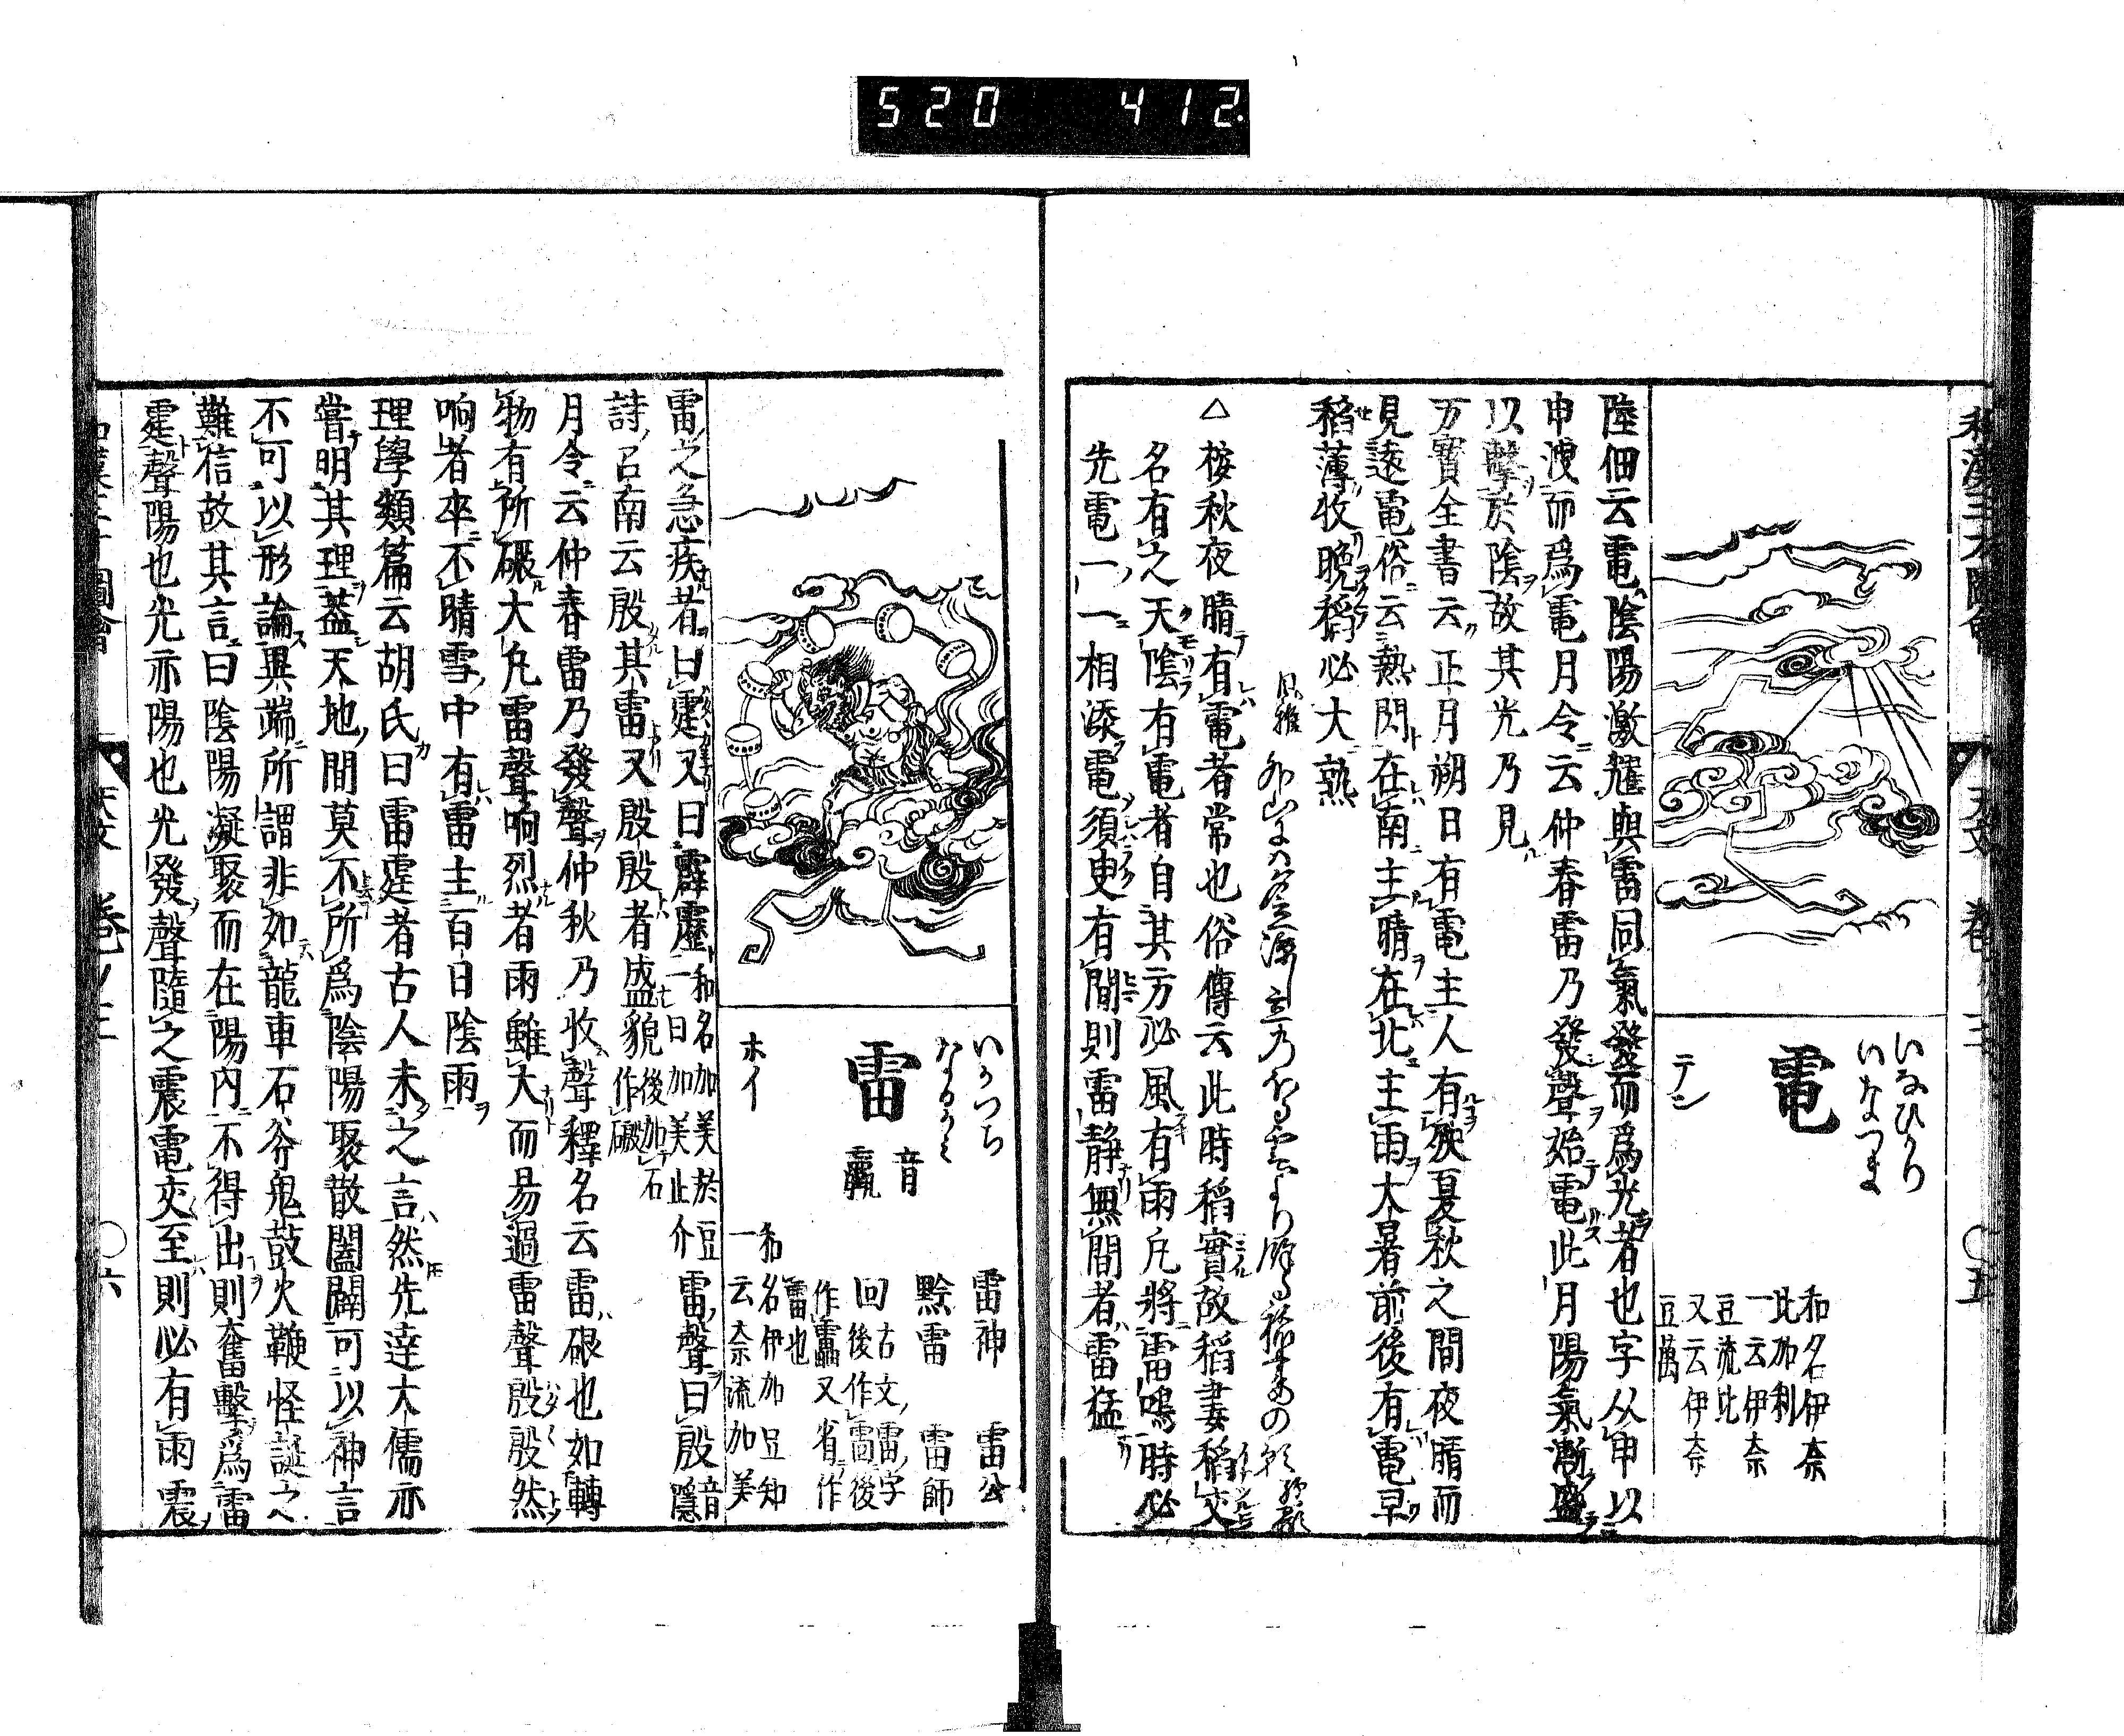 520 412.
和漢三才圖會
天文
卷三
〇五
いなひかり
いなつま
電
テン
和名伊奈
比加利
一云伊奈
豆流比
又云伊奈
豆萬
陸佃云電陰陽激耀與雷同氣發而爲光者也字从申以
申洩而爲電月令云仲春雷乃發聲始電此月陽氣漸盛
以擊於陰故其光乃見
万寳全書云正月朔日有電主人有殃夏秋之間夜晴而
見遠電俗云熱閃在南主晴在北主雨大暑前後有電早
稻薄收晩稻必大熟
△桉秋夜晴有電者常也俗傳云此時稻實故稻妻稻交
名有之天陰有電者自其方必風有雨凡將雷鳴時必
先電一一相添電須臾有間則雷靜無間者雷猛
いかつち
なるかみ
雷
音
ホイ
雷神 雷公
黔雷 雷師
回古文雷字
後作䨓後
作靁又省作
雷也
和名伊加豆知
一云奈流加美
雷之急疾者曰霆又曰霹靂和名加美於豆
一曰加美止介雷聲曰殷音隱
詩召南云殷其雷又殷殷者盛貌後加石
作磤
月令云仲春雷乃發聲仲秋乃收聲釋名云雷硠也如轉
物有所硠大凡雷聲响烈者雨雖大而易過雷聲殷殷然
响者卒不晴雪中有雷主百日陰雨
理學類篇云胡氏曰雷霆者古人未之言然先達大儒亦
嘗明其理蓋天地間莫不所爲陰陽聚散闔闢可以神言
不可以形論異端所謂非如龍車石斧鬼鼓火鞭怪誕之
難信故其言曰陰陽凝聚而在陽内不得出則奮擊爲雷
霆聲陽也光亦陽也光發聲隨之震電交至則必有雨震
天文
卷ノ三
〇六